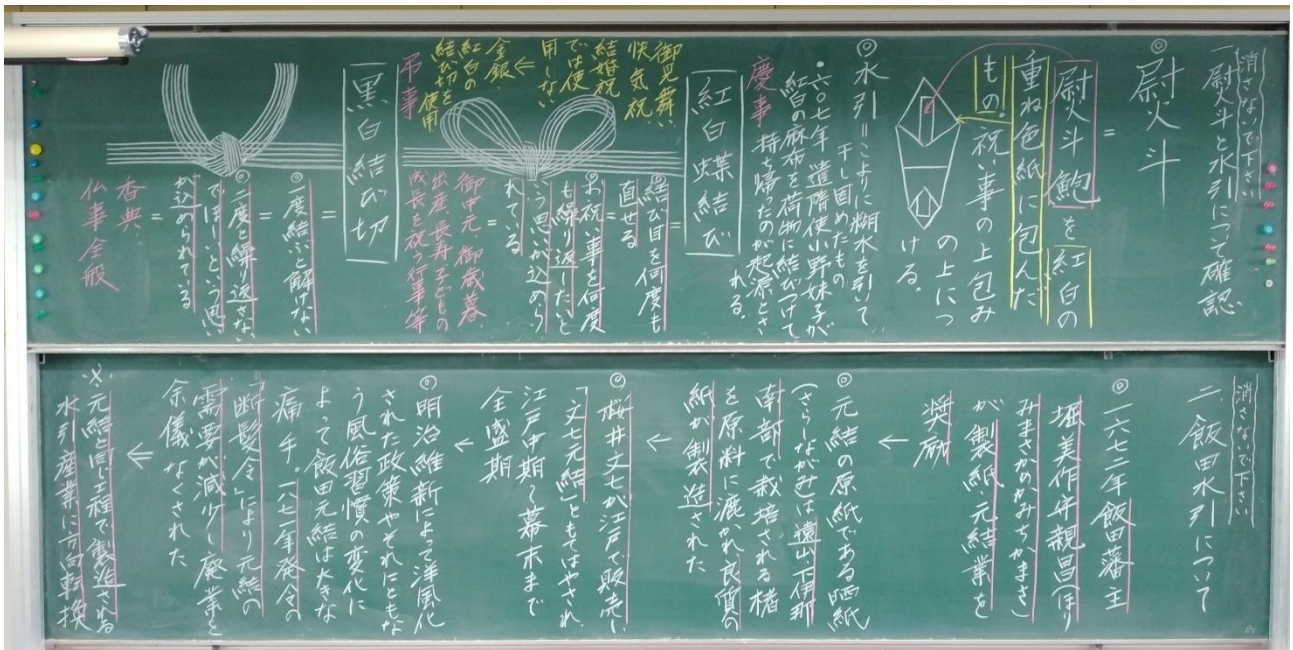 消さないで下さい
一、尉火斗と水引について確認
◎尉火斗
=
尉火斗鮑を紅白の
重ね色紙に包んだ
もの。祝い事の上包み
の上につ
ける。
◎水引=こよりに糊水を引いて、
干し固めたもの
・六〇七年 遣隋使小野妹子が
紅白の麻布を荷物に結びつけて
持ち帰ったのが起源とさ
れる。
慶事
紅白蝶結び
=
結び目を何度も
直せる
=
お祝い事を何度
も繰り返したいと
いう思いが込めら
れている
=
御中元、御歳暮、
出産、長寿、子どもの
成長を祝う行事等
御見舞い、
快気祝、
結婚祝
では使
用しない
←
金銀、
紅白の
結び切を
使用
弔事
黒白結び切
=
◎一度結ぶと解けない
=
◎二度と繰り返さない
でほしいという思い
が込められている
=
香典、
仏事全般
消さないで下さい
二、飯田水引について
◎一六七二年飯田藩主
堀美作守親昌(ほり
みまさかのかみちかまさ)
が製紙、元結業を
奨励
←
◎元結の原紙である晒紙
(さらしながみ)は遠山、下伊那
南部で栽培される楮
を原料に漉かれ良質の
紙が製造された
←
◎桜井文七が江戸で販売し
「文七元結」ともてはやされ、
江戸中期~幕末まで
全盛期
←
◎明治維新によって洋風化
された政策やそれにともな
う風俗習慣の変化に
よって飯田元結は大きな
痛手。一八七一年発令の
「断髪令」により元結の
需要が減少し廃業を
余儀なくされた
⇐
※元結と同じ工程で製造される
水引産業に方向転換